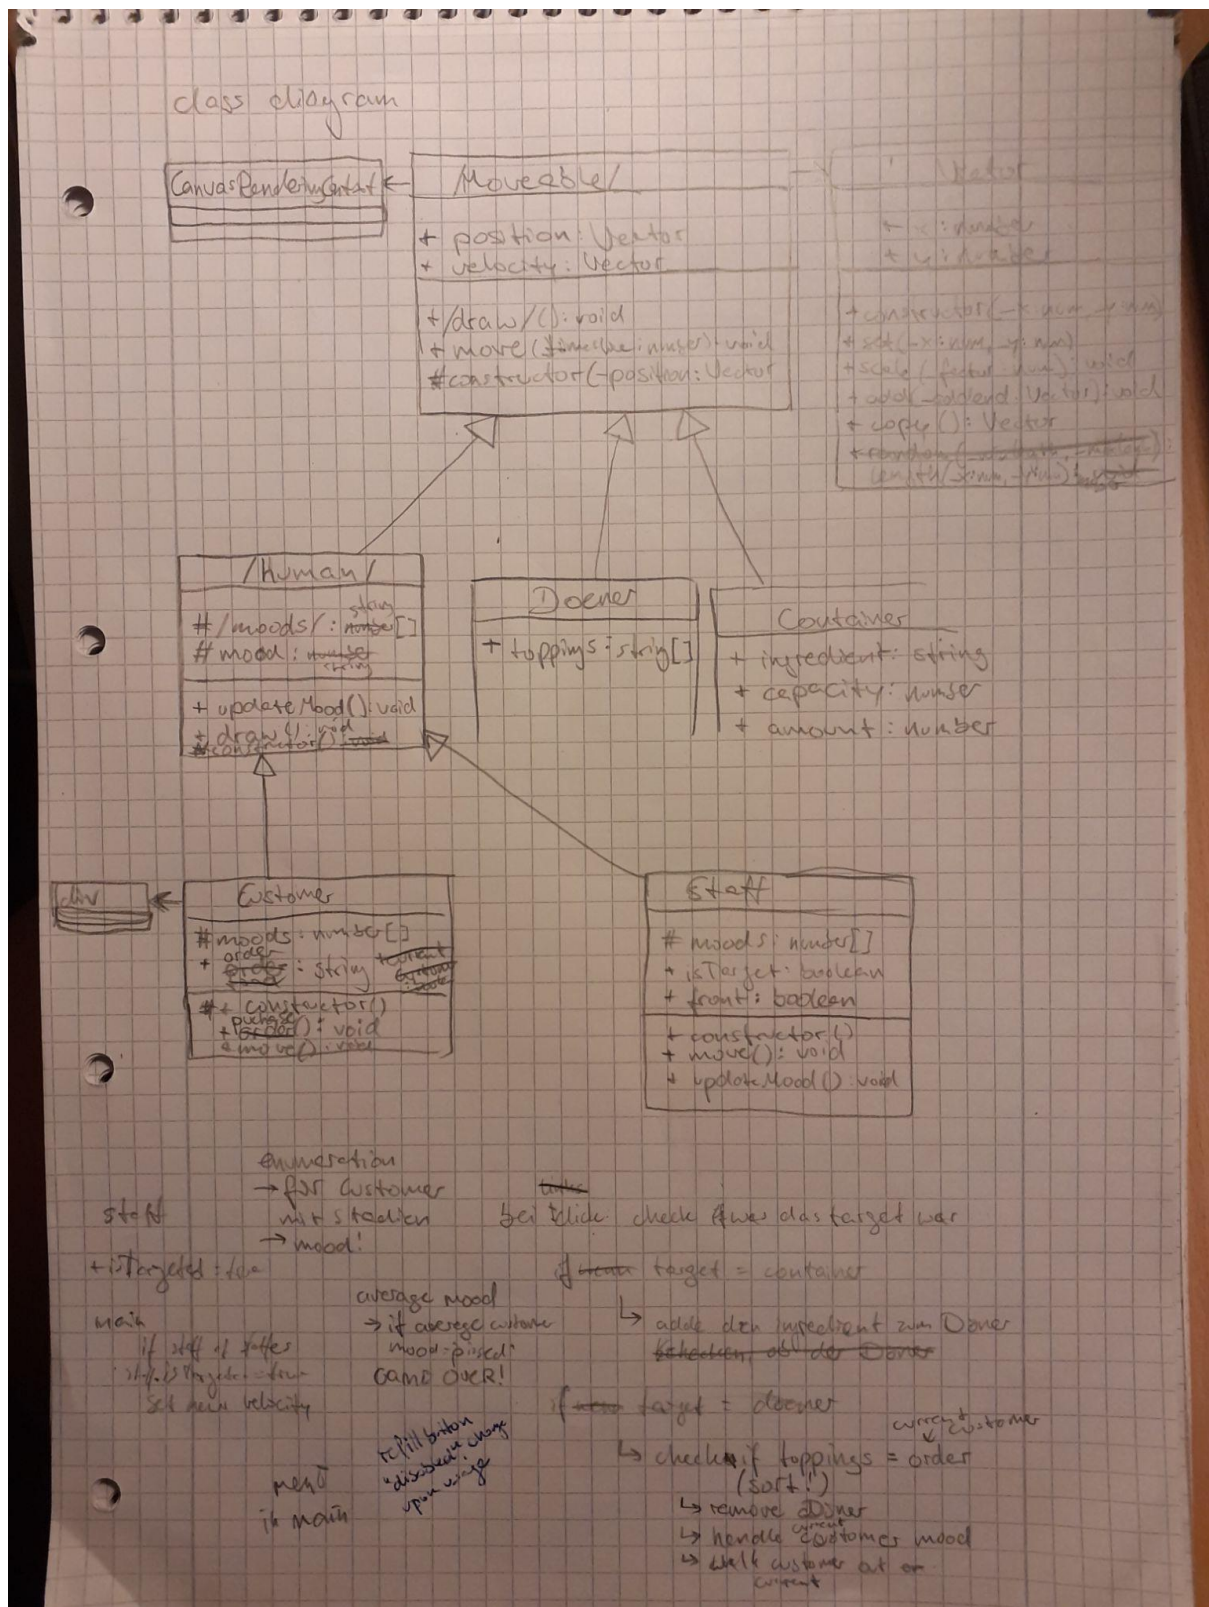 class diagram
CanvasRenderingContext
/Moveable/
+ position: Vector
+ velocity: Vector
+/draw/(): void
+ move(_timeslice: number): void
#constructor(_position: Vector
Vector
+ x: number
+ y: number
+ constructor(_x: num, _y: num)
+ set(_x: num, _y: num)
+ scale(_factor: num): void
+ add(_addend: Vector): void
+ copy(): Vector
+ random(
length(_x: num, _y: num):
/Human/
string
#/moods/: number[]
# mood: number
string
+ updateMood(): void
+ draw(): void
constructor(): void
Doener
+ toppings: string[]
Container
+ ingredient: string
+ capacity: number
+ amount: number
div
Customer
# moods: number[]
order
+ order : string
+current
# + constructor()
purchase
+ order(): void
+ move(): void
Staff
# moods: number[]
+ isTarget: boolean
+ front: boolean
+ constructor()
+ move(): void
+ updateMood(): void
enumeration
→ für Customer
mit Stadien
→ mood!
staff
+ isTargeted: true
main
if staff of staffes
staff.isTargeted = true
set new velocity
average mood
→ if average customer
mood = pissed:
GAME OVER!
menü
in main
refill button
"disabled" change
upon usage
bei klick check was das target war
if target = container
↳ adde den ingredient zum Döner
checken, ob der Döner
if target = doener
current customer
↳ check if toppings = order
(sort!)
↳ remove Döner
current
↳ handle customer mood
↳ walk customer out
current